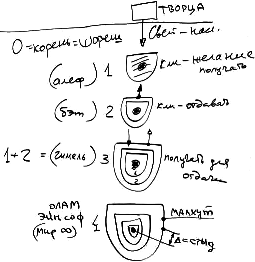 ТВОРЦА
0=корень=шореш
Свет-нас.
(алеф) 1
кли-желание
получать
(бэт) 2
кли-отдавать
1+2=(гимель) 3
1
2
получать для
отдачи
ОЛАМ
ЭЙН СОФ
(мир ∞)
4
МАЛХУТ
Δ=стыд